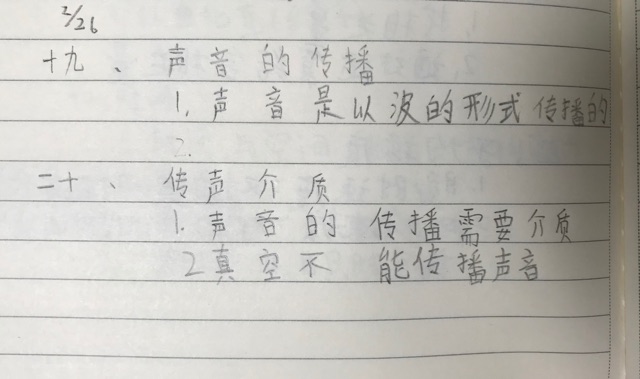 2/26
十九、声音的传播
1.声音是以波的形式传播的
2.
二十、传声介质
1.声音的传播需要介质
2真空不能传播声音